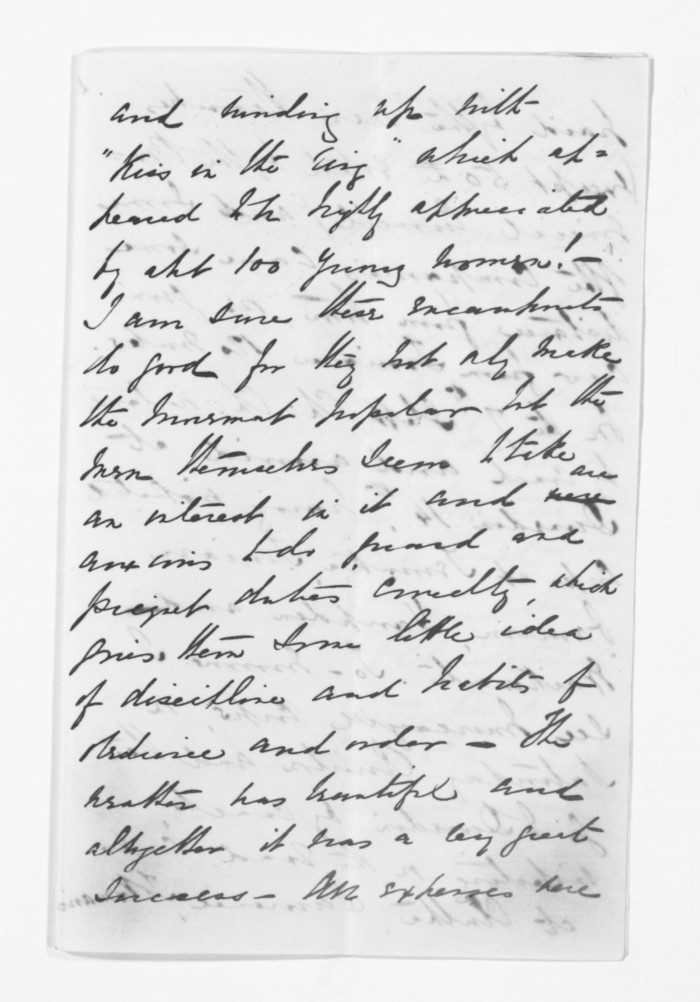 and winding up with
"Kiss in the ring" which ap=
peared to be highly appreciated
by abt 100 young women! -
I am sure these encampments
do good for they not only make
the movement popular but the
men themselves seem to take
an interest in it and are
anxious to do guard and
picquet duties correctly, which
gives them some little idea
of discipline and habits of
obedience and order - The
weather was beautiful and
altogether it was a very great
success - All expenses were